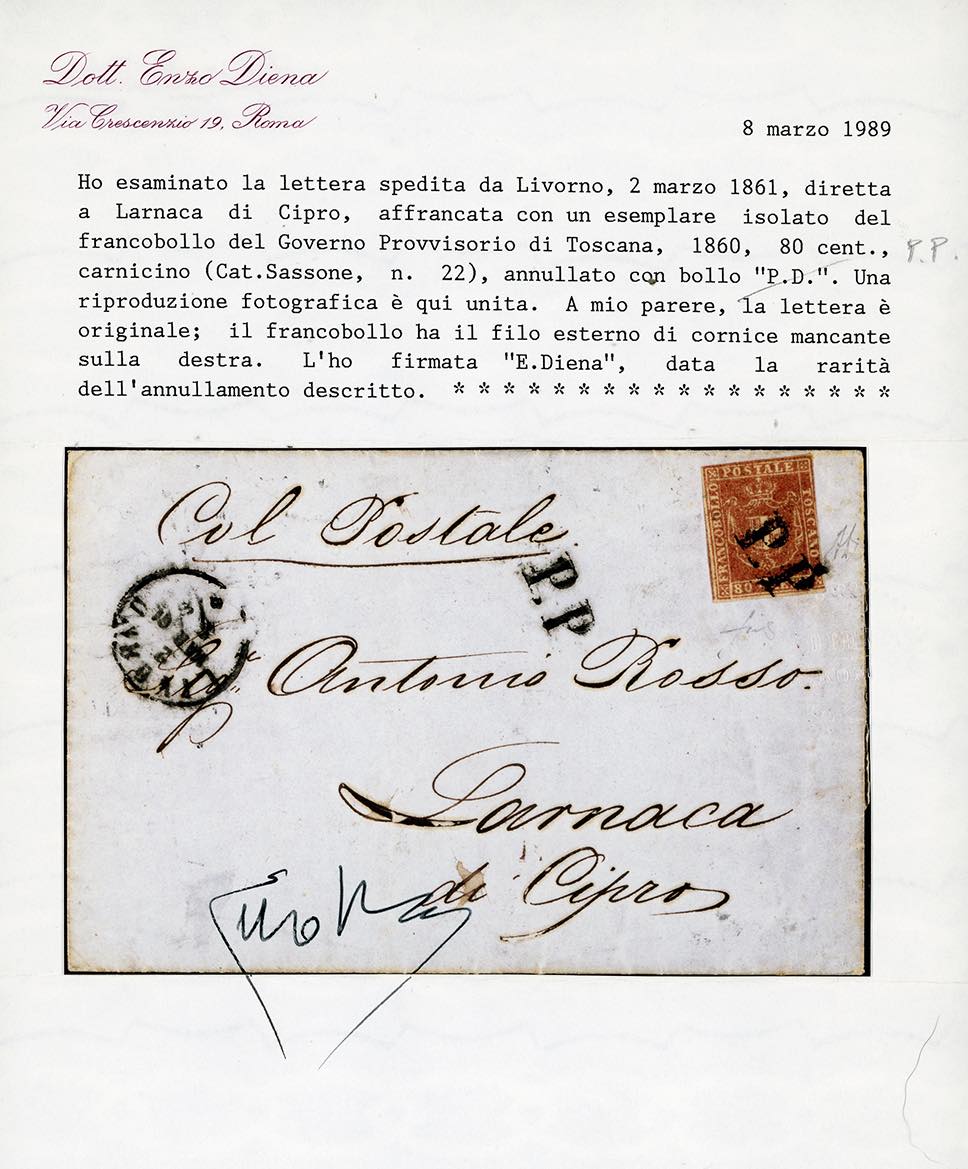 Dott. Enzo Diena
Via Crescenzio 19, Roma
8 marzo 1989
Ho esaminato la lettera spedita da Livorno, 2 marzo 1861, diretta
a Larnaca di Cipro, affrancata con un esemplare isolato del
francobollo del Governo Provvisorio di Toscana, 1860, 80 cent., P.P.
carnicino (Cat.Sassone, n. 22), annullato con bollo "P.D.". Una
riproduzione fotografica è qui unita. A mio parere, la lettera è
originale; il francobollo ha il filo esterno di cornice mancante
sulla destra. L'ho firmata "E.Diena", data la rarità
dell'annullamento descritto. * * * * * * * * * * * * * * * * * *
Col Postale
FRANCOBOLLO POSTALE TOSCANO
80
P.P
LIVORNO
Antonio Rosso.
Larnaca
di Cipro